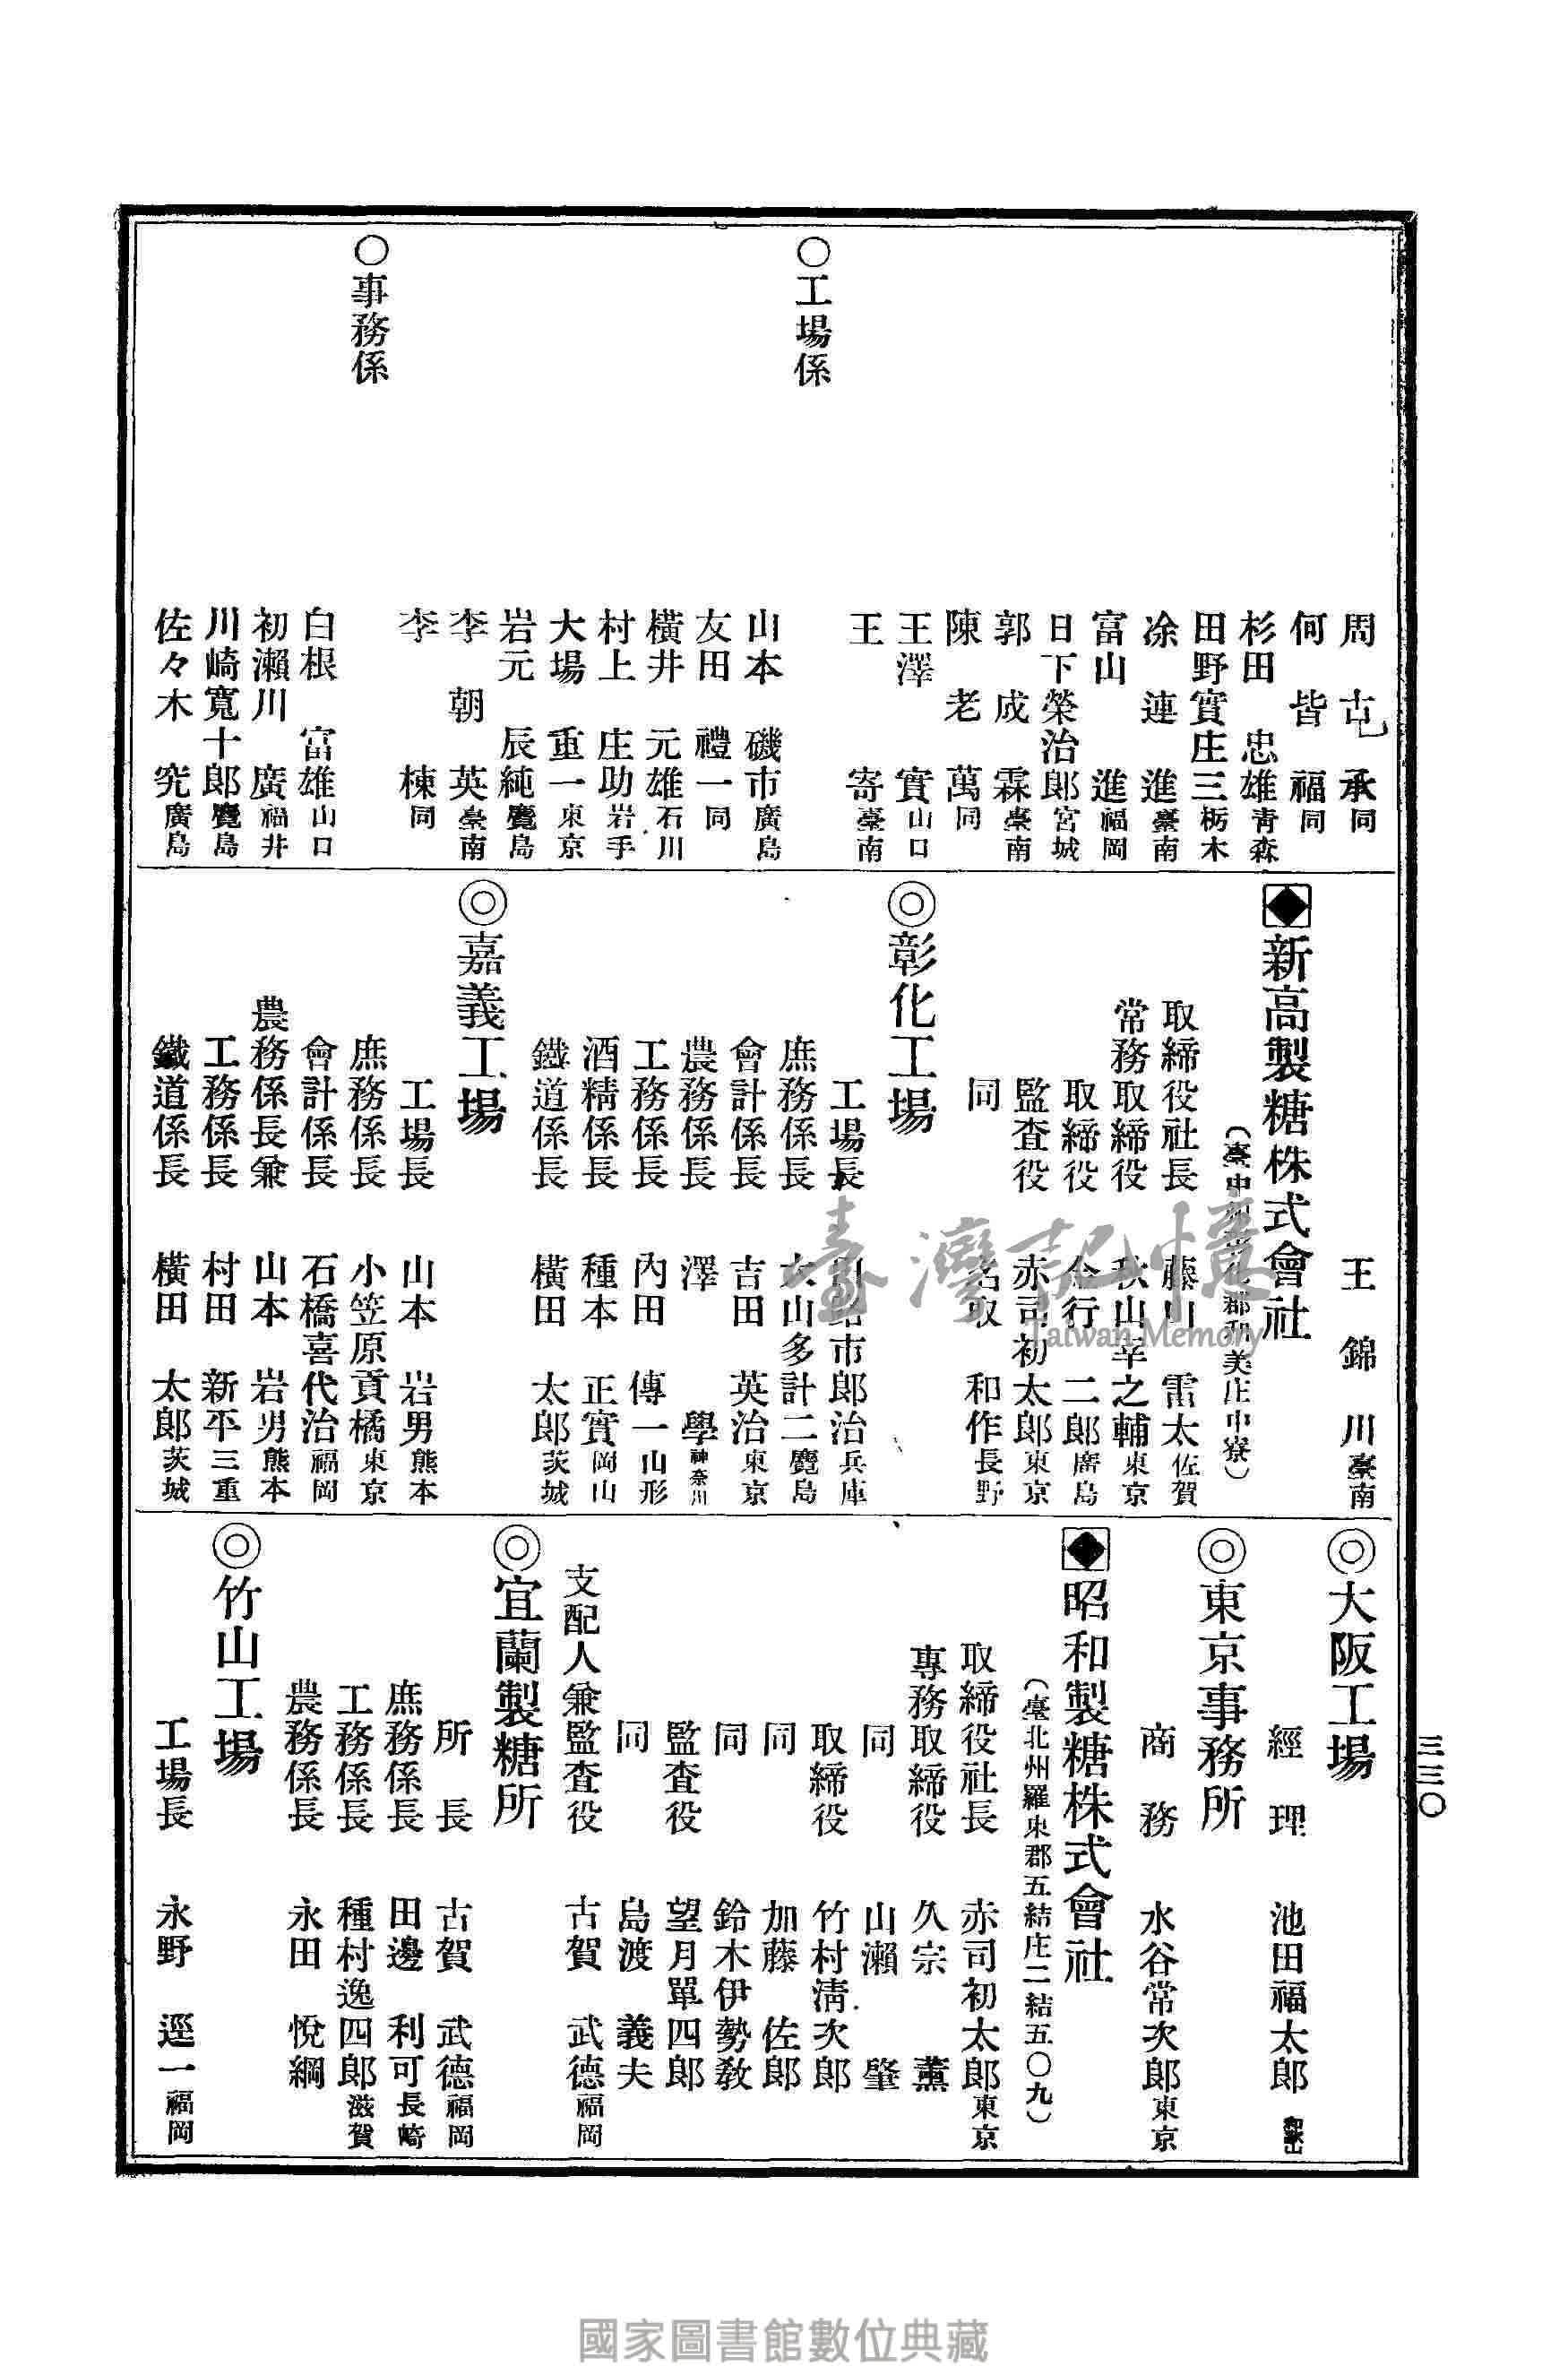 周古已承同
何皆福同
杉田忠雄青森
田野實庄三栃木
凃連進臺南
富山進福岡
日下榮治郎宮城
郭成霖臺南
陳老萬同
王澤實山口
王寄臺南
〇工場係
山本磯市廣島
友田禮一同
橫井元雄石川
村上庄助岩手
大場重一東京
岩元辰純鹿兒島
李朝英臺南
李棟同
〇事務係
白根富雄山口
初瀨川廣福井
川崎寬十郎鹿兒島
佐々木究廣島
王錦川臺南
新高製糖株式會社
(臺中州彰化郡和美庄中寮)
取締役社長 藤山雷太佐賀
常務取締役 秋山幸之輔東京
取締役 金行二郎廣島
監査役 赤司初太郎東京
同 名取和作長野
◎彰化工場
工場長 市郎治兵庫
庶務係長 大山多計二鹿兒島
會計係長 吉田英治東京
農務係長 澤學神奈川
工務係長 內田傳一山形
酒精係長 種本正實岡山
鐵道係長 橫田太郎茨城
◎嘉義工場
工場長 山本岩男熊本
庶務係長 小笠原貢橘東京
會計係長 石橋喜代治福岡
農務係長兼 山本岩男熊本
工務係長 村田新平三重
鐵道係長 橫田太郎茨城
◎大阪工場
經理 池田福太郎和歌山
◎東京事務所
商務 水谷常次郎東京
昭和製糖株式會社
(臺北州羅東郡五結庄二結五〇九)
取締役社長 赤司初太郎東京
專務取締役 久宗薰
同 山瀨肇
取締役 竹村淸次郎
同 加藤佐郎
同 鈴木伊勢敎
監査役 望月單四郎
同 島渡義夫
支配人兼監査役 古賀武德福岡
◎宜蘭製糖所
所長 古賀武德福岡
庶務係長 田邊利可長崎
工務係長 種村逸四郎滋賀
農務係長 永田悅綱
◎竹山工場
工場長 永野逕一福岡
三三〇
臺灣記憶
Taiwan Memory
國家圖書館數位典藏